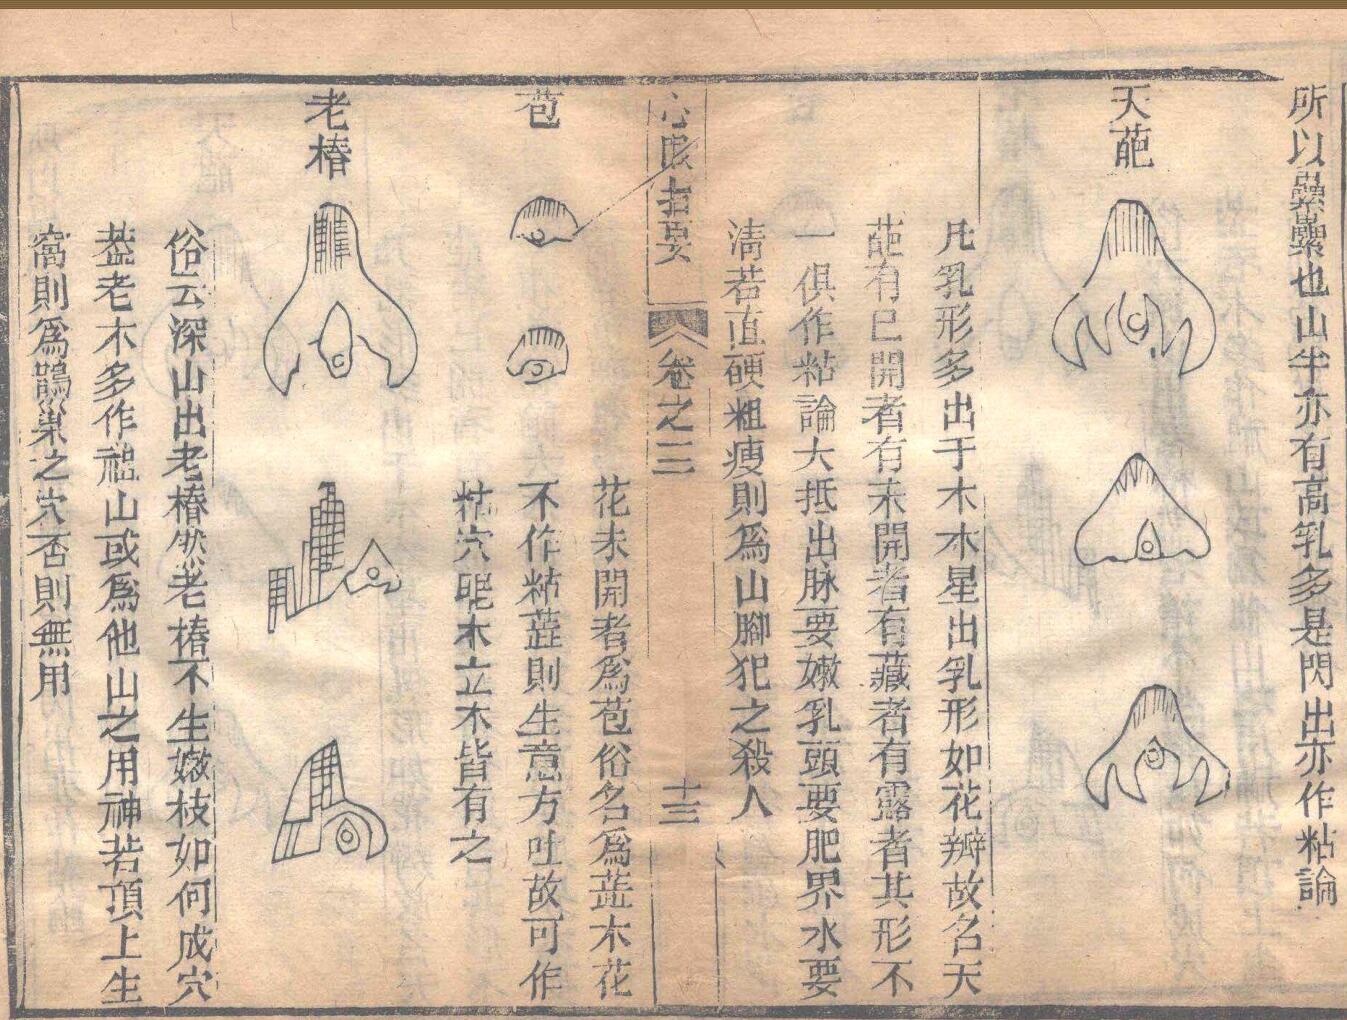 所以纍纍也山半亦有高乳多是閃出亦作粘論
天葩
凡乳形多出于木木星出乳形如花瓣故名天
葩有已開者有未開者有藏者有露者其形不
一俱作粘論大抵出脉要嫩乳頭要肥界水要
清若直硬粗瘦則爲山腳犯之殺人
心眼指要
卷之三
十三
苞
花未開者爲苞俗名爲蕋木花
不作粘蕋則生意方吐故可作
粘穴眠木立木皆有之
老椿
俗云深山出老椿然老椿不生嫩枝如何成穴
葢老木多作祖山或爲他山之用神若頂上生
窩則爲鵲巢之穴否則無用